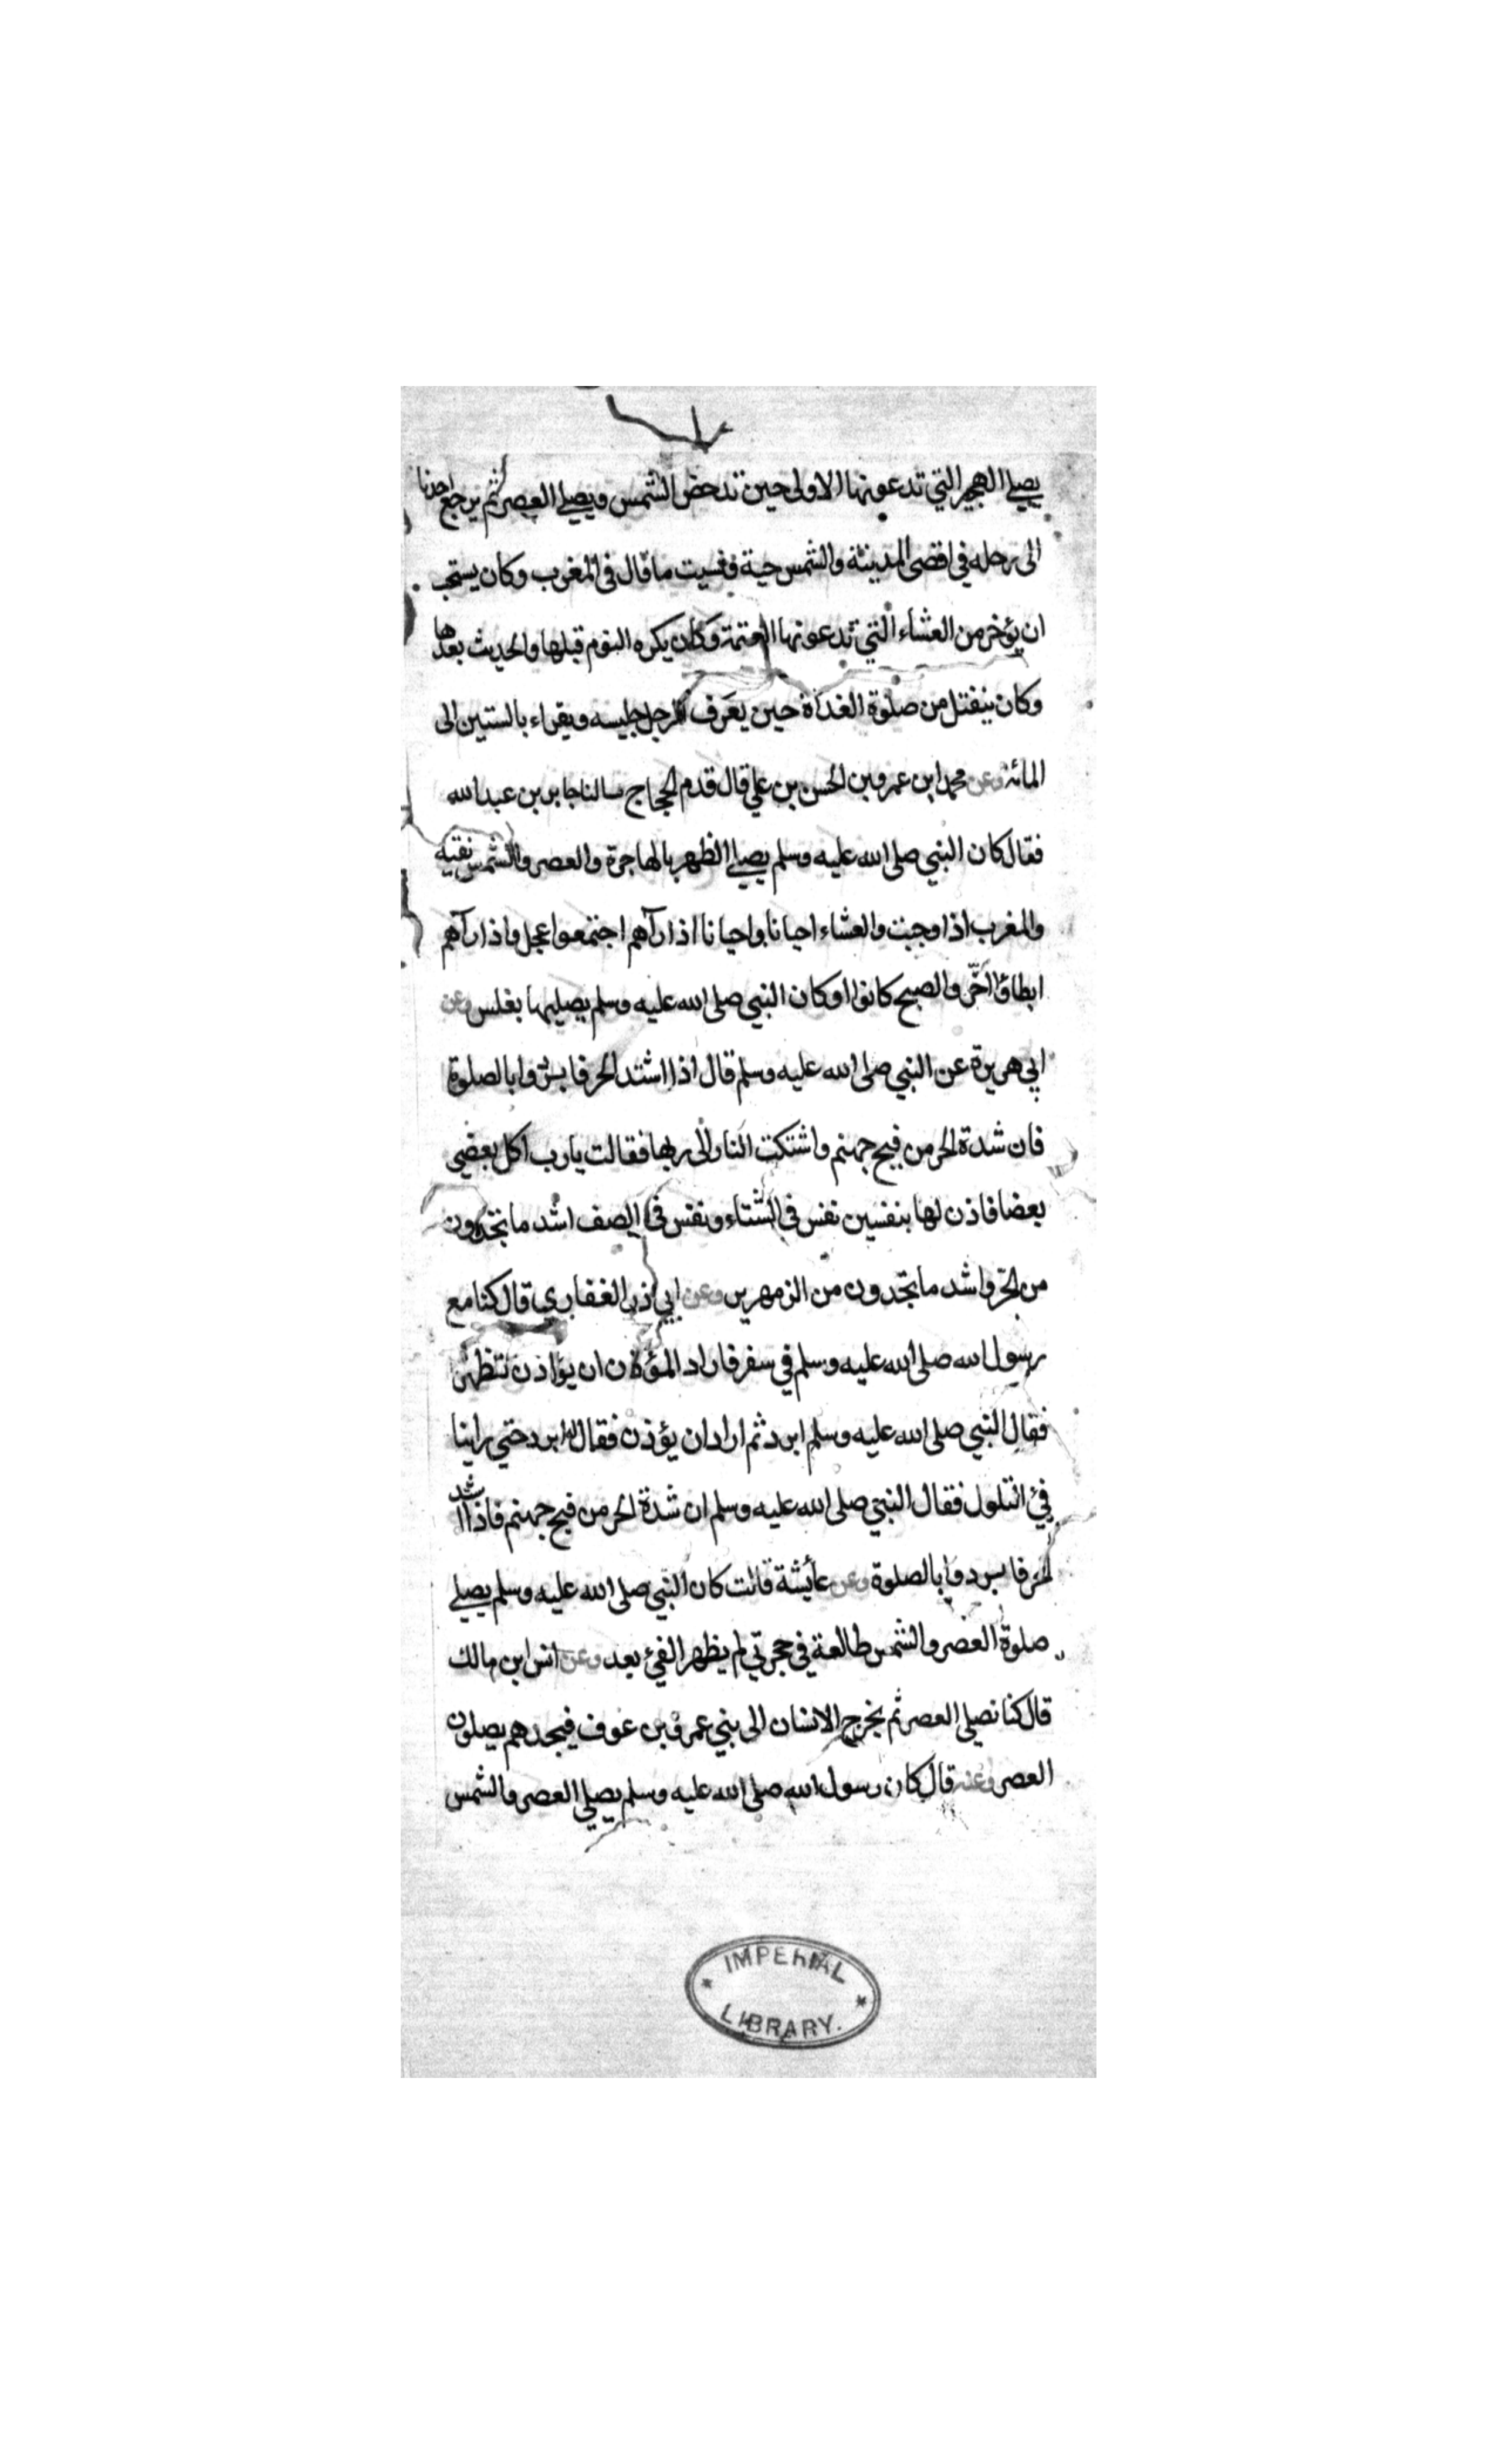 يصلي الهجير التي تدعونها الاولى حين تدحض الشمس ويصلي العصر ثم يرجع احدنا
الى رحله في اقصى المدينة والشمس حية ونسيت ما قال في المغرب وكان يستحب
ان يؤخر من العشاء التي تدعونها العتمة وكان يكره النوم قبلها والحديث بعدها
وكان ينفتل من صلوة الغداة حين يعرف الرجل جليسه ويقراء بالستين الى
المائة وعن محمد ابن عمرو بن الحسن بن علي قال قدم الحجاج سالنا جابر بن عبد الله
فقال كان النبي صلى الله عليه وسلم يصلي الظهر بالهاجرة والعصر والشمس نقيه
والمغرب اذا وجبت والعشاء احيانا واحيانا اذا رآهم اجتمعوا عجل واذا رآهم
ابطاؤا اخّر والصبح كانوا او كان النبي صلى الله عليه وسلم يصليها بغلس وعن
ابي هريرة عن النبي صلى الله عليه وسلم قال اذا اشتد الحر فابردوا بالصلوة
فان شدة الحر من فيح جهنم واشتكت النار الى ربها فقالت يا رب اكل بعضي
بعضا فاذن لها بنفسين نفس في الشتاء ونفس في الصف اشد ما تجدون
من الحر واشد ما تجدون من الزمهرير وعن ابي ذر الغفاري قال كنا مع
رسول الله صلى الله عليه وسلم في سفر فاراد المؤذن ان يؤاذن
فقال النبي صلى الله عليه وسلم ابرد ثم اراد ان يؤذن فقال له ابرد حتي راينا
فئ التلول فقال النبي صلى الله عليه وسلم ان شدة الحر من فيح جهنم فاذا اشد
الحر فابردوا بالصلوة وعن عايشة قالت كان النبي صلى الله عليه وسلم يصلي
صلوة العصر والشمس طالعة في حجرتي لم يظهر الفئ بعد وعن انس ابن مالك
قال كنا نصلي العصر ثم يخرج الانسان الى بني عمرو بن عوف فيجدهم يصلون
العصر وعنه قال كان رسول الله صلى الله عليه وسلم يصلي العصر والشمس
IMPERIAL
LIBRARY.